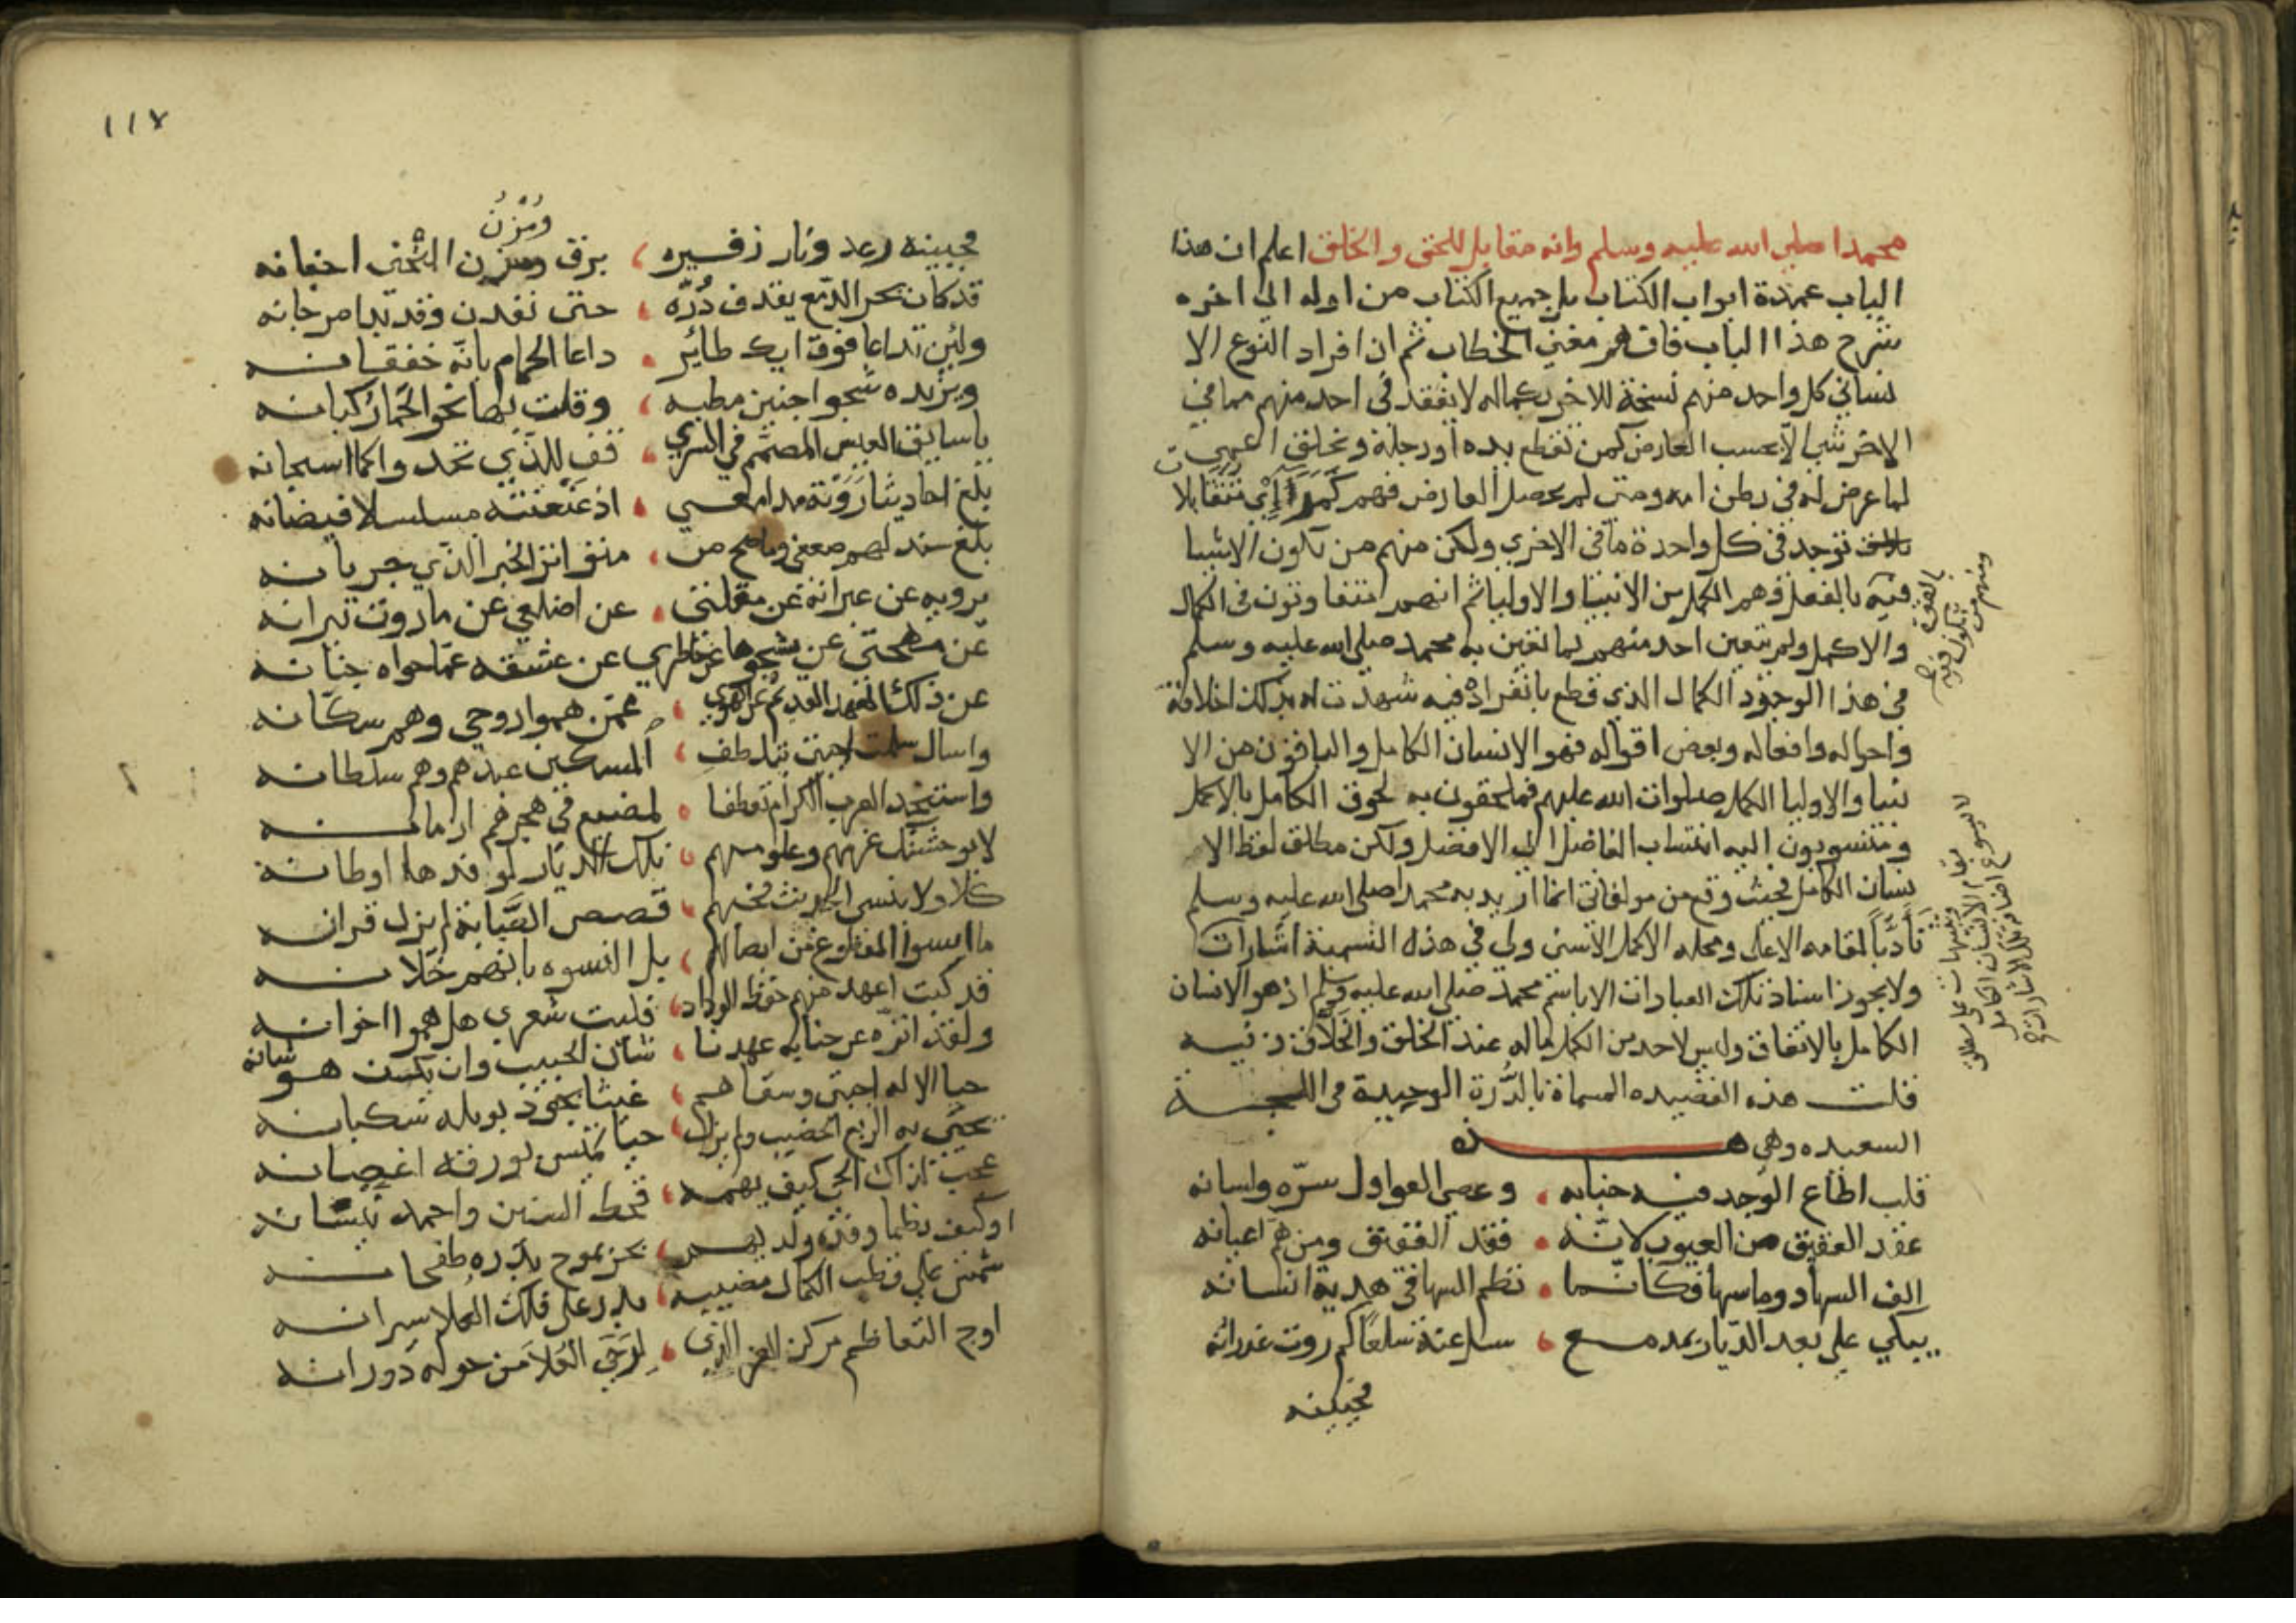 محمدا صلى الله عليه وسلم وانه مقابل للحق والخلق اعلم ان هذا
الباب عمدة ابواب الكتاب بل جميع الكتاب من اوله الى اخره
شرح هذا الباب فافهم معنى الخطاب ثم ان افراد النوع الا
نساني كل واحد منهم نسخة للاخر بكماله لا يفقد في احد منهم مما في
الاخر شيا الا بحسب العارض كمن تقطع يده او رجله ويخلق اعمى
لما عرض له في بطن امه ومتى لم يحصل العارض فهم كمراتين متقابلا
ت توجد في كل واحدة ما في الاخرى ولكن منهم من تكون الاشيا
فيه بالفعل وهم الكمل من الانبيا والاوليا ثم انهم متفاوتون في الكمال
والاكمل ولم يتعين احد منهم بما تعين به محمد صلى الله عليه وسلم
في هذا الوجود الكمال الذي قطع بانفراده فيه شهدت له بذلك اخلاقه
واحواله وافعاله وبعض اقواله فهو الانسان الكامل والباقون من الا
نبيا والاوليا الكمل صلوات الله عليهم فملحقون به لحوق الكامل بالاكمل
ومنتسبون اليه انتساب الفاضل الى الافضل ولكن مطلق لفظ الا
نسان الكامل فحيث وقع من مولفاتي انما اريد به محمدا صلى الله عليه وسلم
تأدبا لمقامه الاعلى ومحله الاكمل الاسنى ولي في هذه التسمية اشارات
ولا يجوز اسناد تلك العبارات الا باسم محمد صلى الله عليه وسلم اذ هو الانسان
الكامل بالاتفاق وليس لاحد من الكمل ما له عند الخلق والخلاق وفيه
قلت هذه القصيده المسماة بالدرة الوحيدة في اللجة
السعيده وهي هذه
قلب اطاع الوجد فيه جنانه وعصى العواذل سره ولسانه
عقد العقيق من العيون لانه فقد العقيق ومن هم اعيانه
الف السهاد وما سها فكانما نظم السها في هدبه انسانه
يبكي على بعد الديار بمدمع سل عنه سلعا كم روت غدرانه
فحنينه
ومنهم من
تكون فيه
بالقوة
وتنبيهات على مطلق
مقام الانسان الكامل
لا يسوغ اضافة تلك الاشارات
١١٧
ومزن
فحنينه رعد ونار زفيره برق ومزن المنحنى اجفانه
قد كان بحر الدمع يقذف دره حتى نفدن وقد بدا مرجانه
ولئن تداعا فوق ايك طائر داعا الحمام بانه خفقانه
ويزيده شجوا حنين مطيه وقلت بها نحو الحمى ركبانه
يا سايق العيس المصمم في السرى قف للذي تحدو
بلغ احاديثا روته مدامعي اذ عنعنته مسلسلا فيضانه
بلغ سند لهم متواتر الخبر الذي جريانه
يرويه عن عبراته عن مقلتي عن اضلعي عن ما روت نيرانه
عن مهجتي عن شجوها عن خاطري عن عشقه عما حواه جنانه
عن ذلك العهد القديم عن الهوى عمن هموا روحي وهم سكانه
واسال سلمت احبتي بتلطف المسكين عبدهم وهم سلطانه
واستنجد العرب الكرام تعطفا لمضيع في هجرهم ازمانه
لا يوحشنك عزهم وعلوهم تلك الديار لوافديها اوطانه
كلا ولا تنسى الحديث فحبهم قصص الصبابة لم يزل قرانه
ما ايسوا المقطوع من ايصالهم بل انسوه بانهم خلانه
قد كنت اعهد منهم حفظ الوداد فليت شعري هل هموا اخوانه
ولقد انزه عن خيانة عهدنا شان الحبيب وان يكن هو شانه
حيا الاله احبتي وسقاهم غيثا يجود بوبله سكبانه
يحيى به الربع الخصيب ولم يزل حيا تميس بورقه اغصانه
عجبا لذاك الحي كيف يهمه قحط السنين واحمد نيسانه
او كيف يظما وفده ولديهم بحر يموج بدره طفحانه
شمس على قطب الكمال مضيئه بدر على فلك العلا سيرانه
اوج التعاظم مركز العز الذي لرحى العلا من حوله دورانه